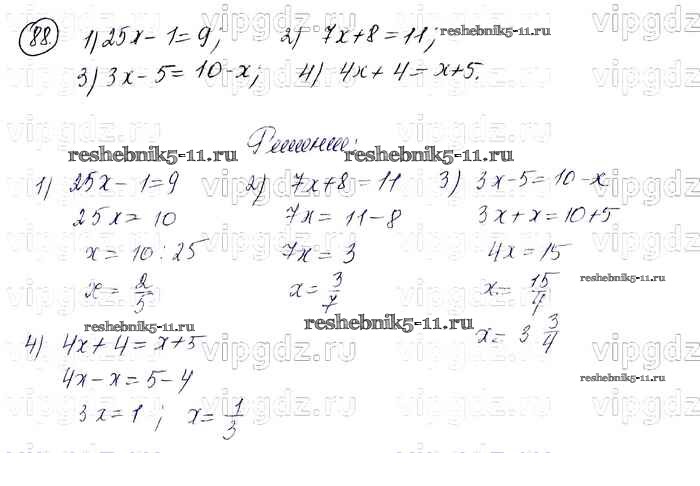 88. 1) 25x - 1 = 9; 2) 7x + 8 = 11; reshebnik5-11.ru
3) 3x - 5 = 10 - x; 4) 4x + 4 = x + 5.
Решение:
reshebnik5-11.ru reshebnik5-11.ru
1) 25x - 1 = 9 2) 7x + 8 = 11 3) 3x - 5 = 10 - x
25x = 10 7x = 11 - 8 3x + x = 10 + 5
x = 10 : 25 7x = 3 4x = 15
x = 2/5 x = 3/7 x = 15/4 reshebnik5-11.ru
reshebnik5-11.ru reshebnik5-11.ru x = 3 3/4
4) 4x + 4 = x + 5
4x - x = 5 - 4 reshebnik5-11.ru
3x = 1 ; x = 1/3
vipgdz.ru